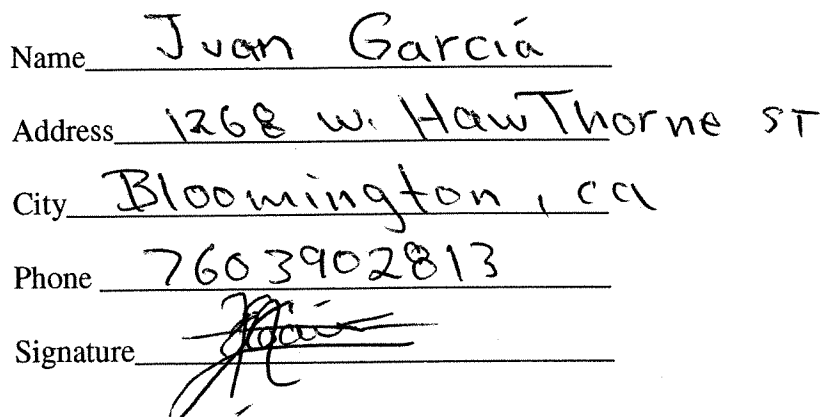 Name Juan Garcia
Address 1268 w. HawThorne ST
City Bloomington, ca
Phone 7603902813
Signature